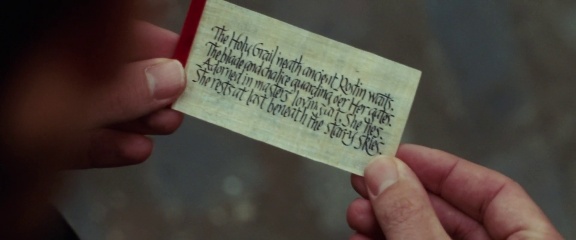 The Holy Grail 'neath ancient Roslin waits.
The blade and chalice guarding o'er Her gates.
Adorned in masters' loving art, She lies.
She rests at last beneath the starry skies.